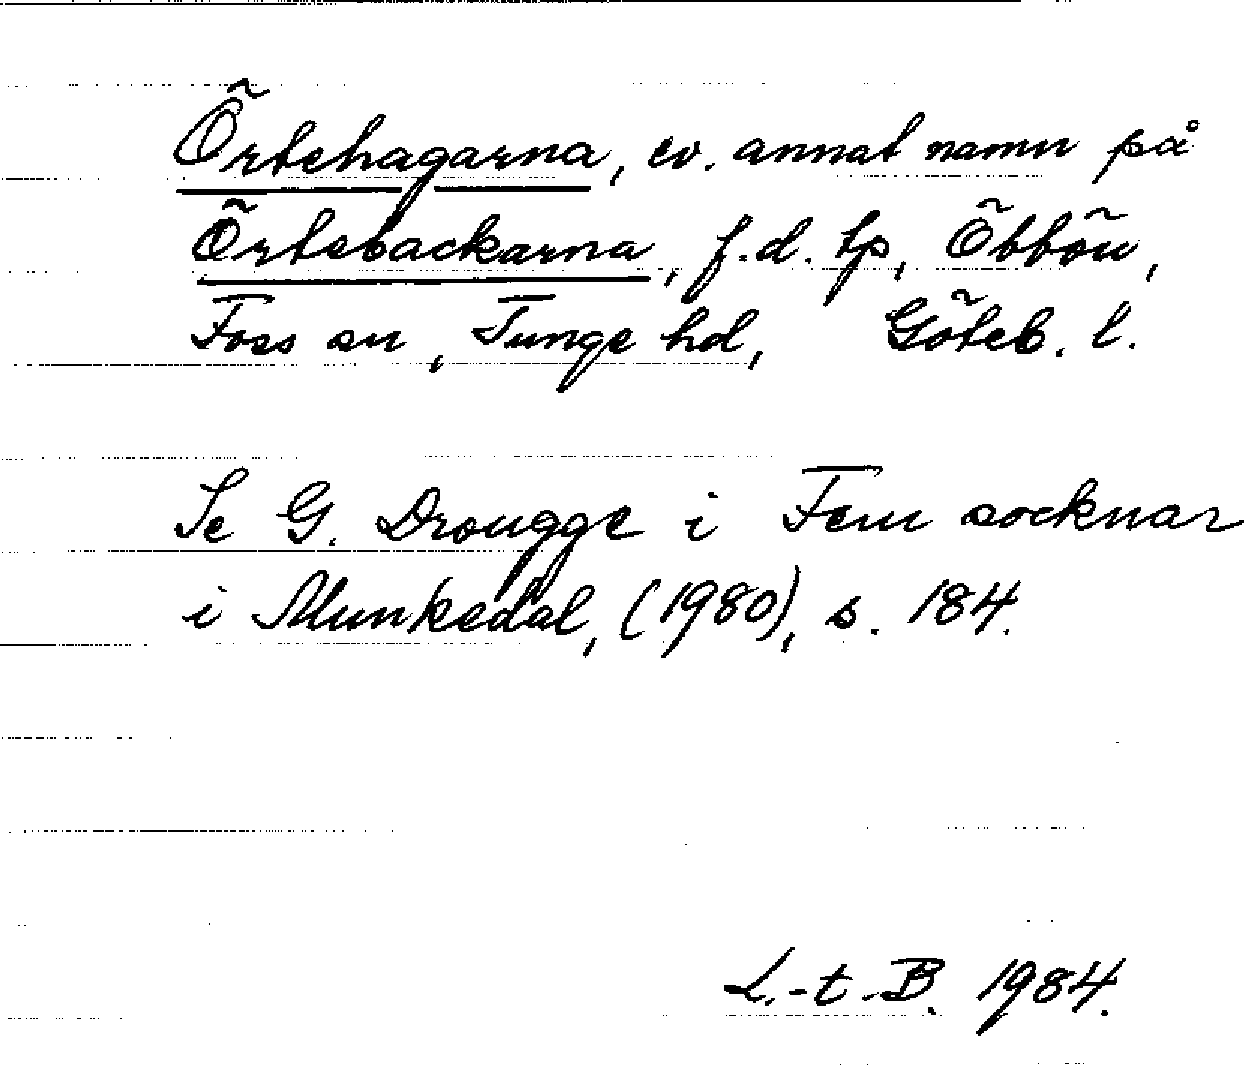 Örtehagarna, ev. annat namn på
Örtebackarna, f.d. tp, Öbbön,
Foss sn, Tunge hd, Göteb. l.
Se G. Drougge i Fem socknar
i Munkedal, (1980), s. 184.
L.-t. B. 1984.